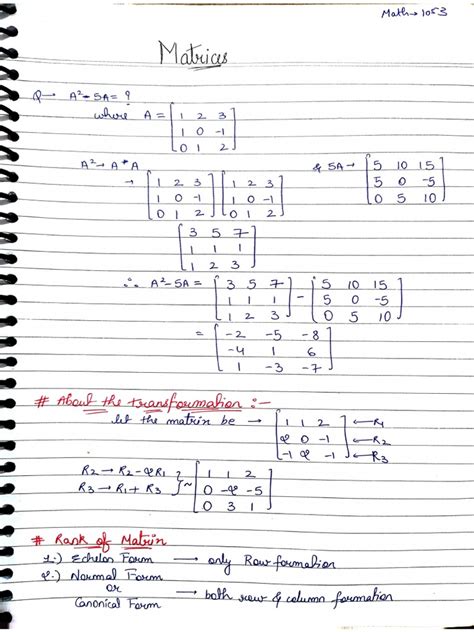 Math→1053
Matrices
Q→ A²-5A = ?
where A = [1 2 3
1 0 -1
0 1 2]
A² → A*A & 5A → [5 10 15
5 0 -5
0 5 10]
→ [1 2 3 [1 2 3
1 0 -1 1 0 -1
0 1 2] 0 1 2]
[3 5 7
1 1 1
1 2 3]
∴ A²-5A = [3 5 7 - [5 10 15
1 1 1 5 0 -5
1 2 3] 0 5 10]
= [-2 -5 -8
-4 1 6
1 -3 -7]
# About the transformation :-
let the matrix be → [1 1 2 ←R₁
2 0 -1 ←R₂
-1 2 -1] ←R₃
R₂ → R₂-2R₁ } ~ [1 1 2
R₃ → R₁+R₃ 0 -2 -5
0 3 1]
# Rank of Matrix
1.) Echelon Form → only Row formation
2.) Normal Form
or → both row & column formation
Canonical Form